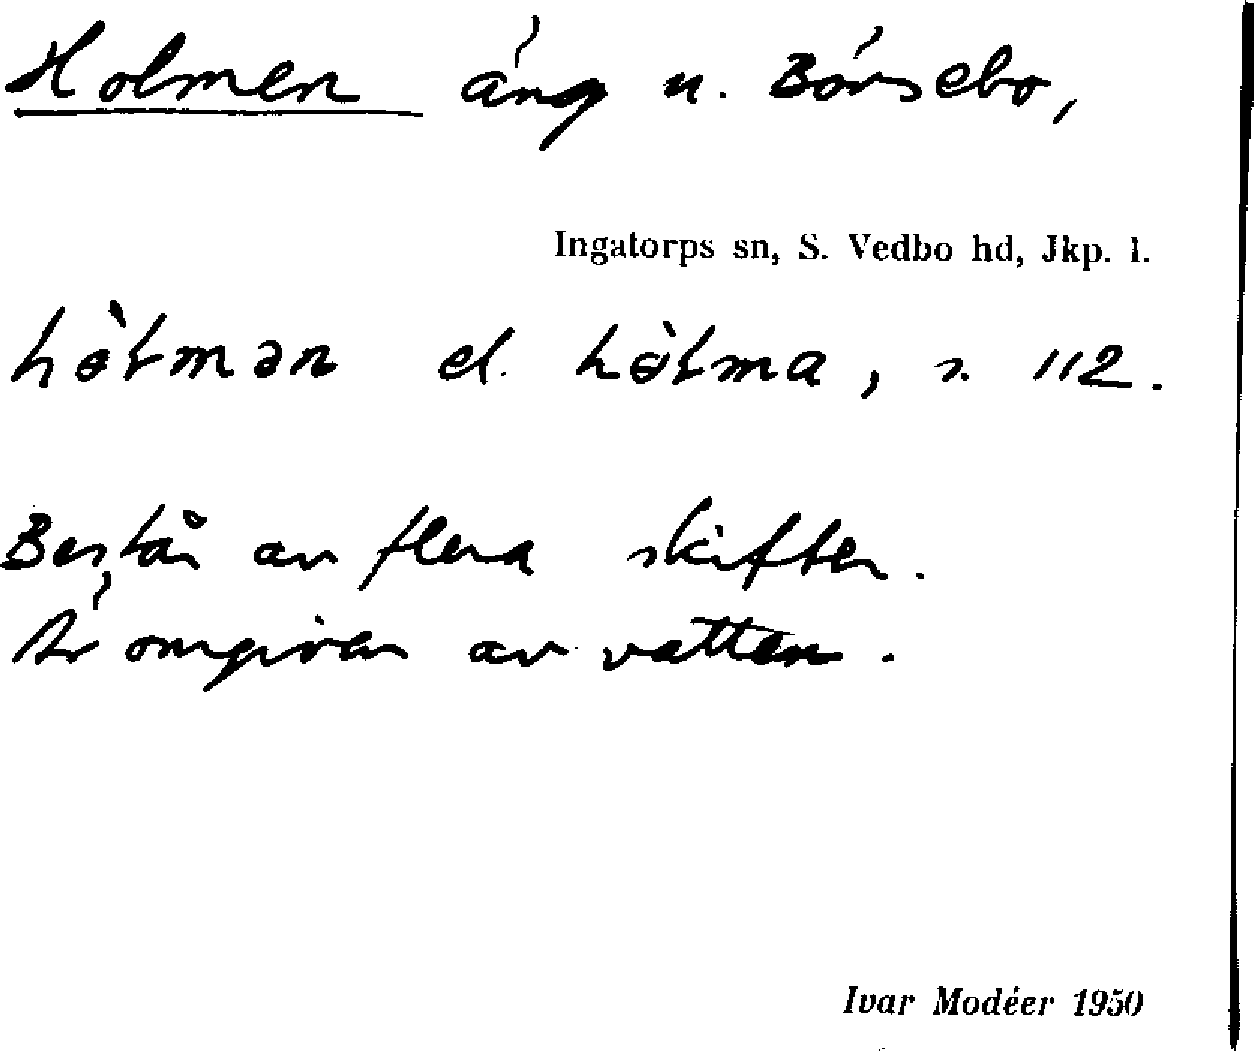 Holmen äng n. Börsebo,
Ingatorps sn, S. Vedbo hd, Jkp. l.
hɵ̀ɫmən el. hɵ̀ɫma, s. 112.
Består av flera skiften.
Är omgiven av vatten.
Ivar Modéer 1950